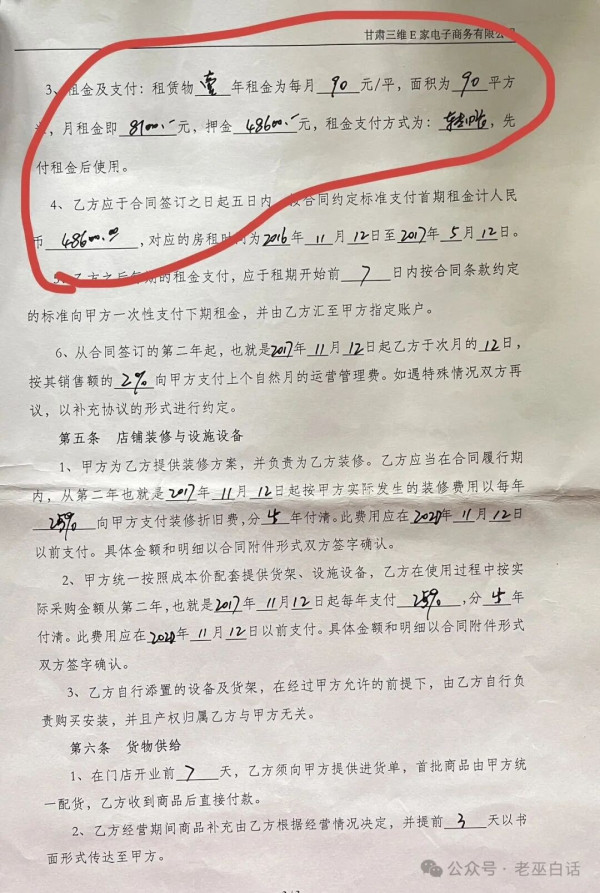 甘肃三维E家电子商务有限公司
3、租金及支付：租赁物 壹 年租金为每月 90 元/平，面积为 90 平方
，月租金即 8100.- 元，押金 48600.- 元，租金支付方式为： ，先
付租金后使用。
4、乙方应于合同签订之日起五日内 按合同约定标准支付首期租金计人民
币 48600.00 ，对应的房租时间为2016年 11 月 12日至2017年 5 月 12日。
乙方之后每期的租金支付，应于租期开始前 7 日内按合同条款约定
的标准向甲方一次性支付下期租金，并由乙方汇至甲方指定账户。
6、从合同签订的第二年起，也就是2017年 11 月 12日起乙方于次月的 12日，
按其销售额的 2% 向甲方支付上个自然月的运营管理费。如遇特殊情况双方再
议，以补充协议的形式进行约定。
第五条 店铺装修与设施设备
1、甲方为乙方提供装修方案，并负责为乙方装修。乙方应当在合同履行期
内，从第二年也就是2017年 11 月 12日起按甲方实际发生的装修费用以每年
25% 向甲方支付装修折旧费，分 年付清。此费用应在 年 11 月 12日
以前支付。具体金额和明细以合同附件形式双方签字确认。
2、甲方统一按照成本价配套提供货架、设施设备，乙方在使用过程中按实
际采购金额从第二年，也就是2017年 11月 12日起每年支付 25% ，分 年
付清。此费用应在 年 11 月 12日以前支付。具体金额和明细以合同附件形式
双方签字确认。
3、乙方自行添置的设备及货架，在经过甲方允许的前提下，由乙方自行负
责购买安装，并且产权归属乙方与甲方无关。
第六条 货物供给
1、在门店开业前 7 天，乙方须向甲方提供进货单，首批商品由甲方统
一配货，乙方收到商品后直接付款。
2、乙方经营期间商品补充由乙方根据经营情况决定，并提前 3 天以书
面形式传达至甲方。
公众号·老巫白话